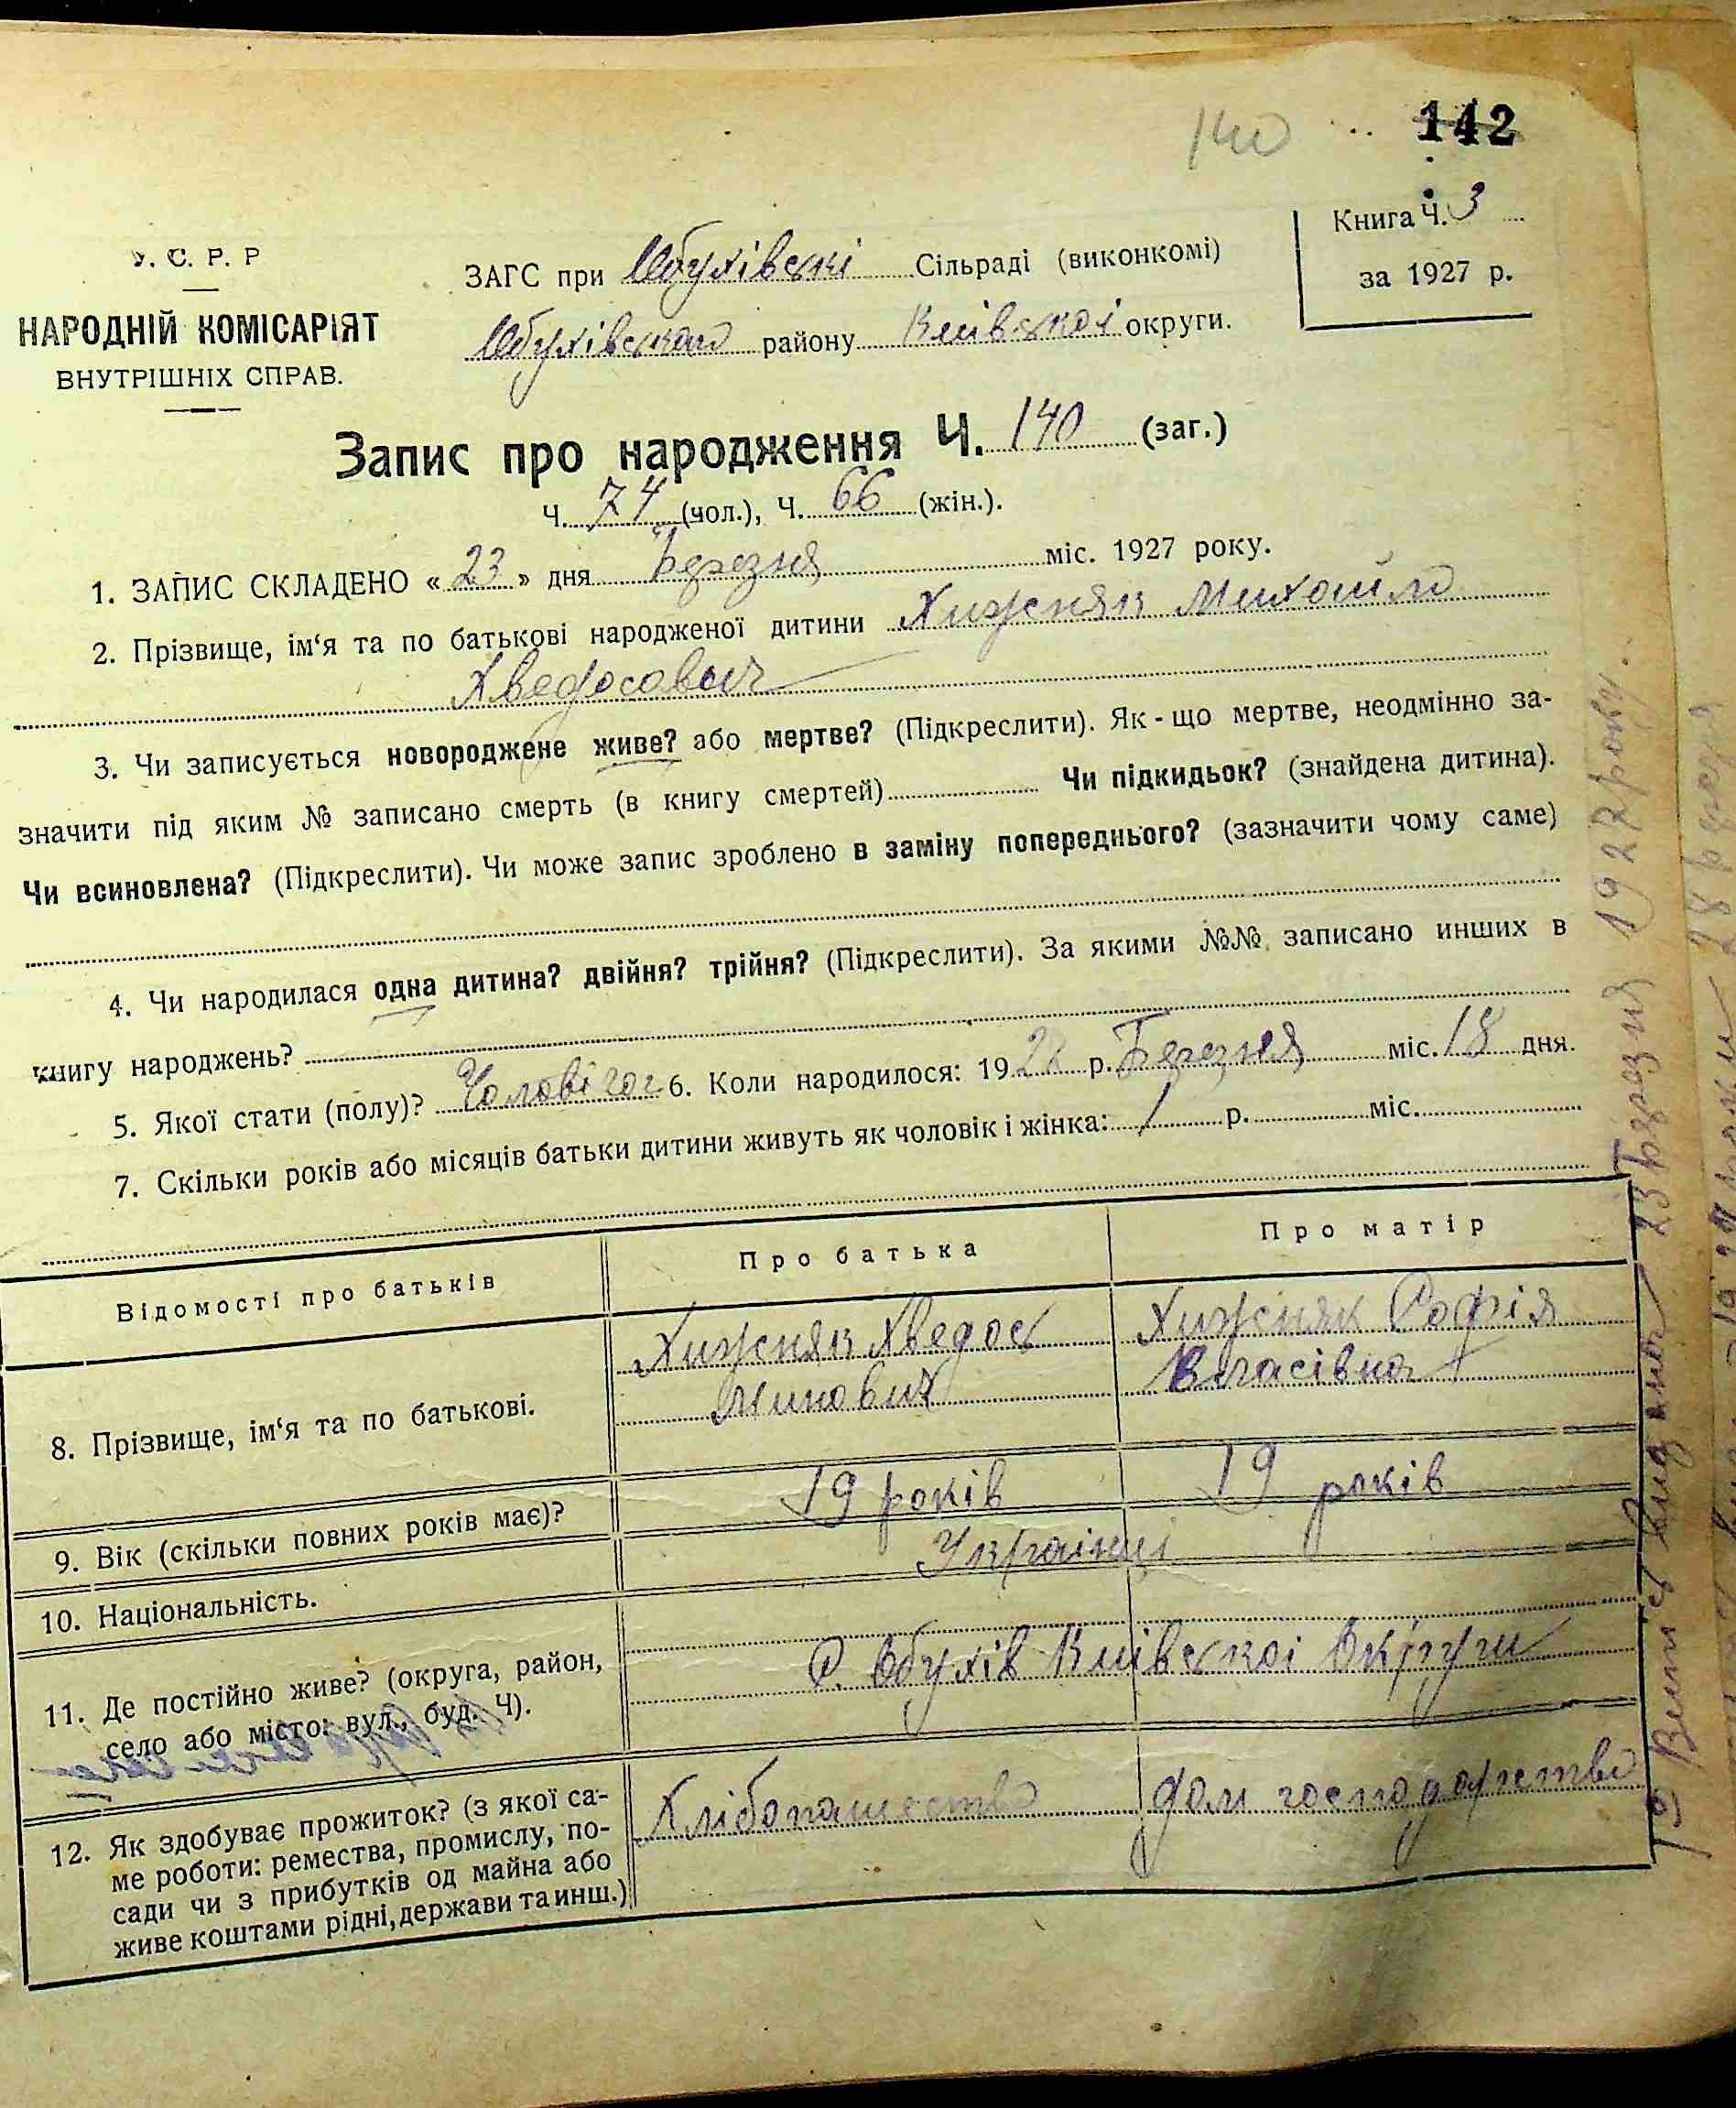 140
142
Книга Ч. 3
за 1927 р.
У. С. Р. Р
НАРОДНІЙ КОМІСАРІЯТ
ВНУТРІШНІХ СПРАВ.
ЗАГС при Обухівські Сільраді (виконкомі)
Обухівского району Київської округи.
Запис про народження Ч. 140 (заг.)
Ч. 74 (чол.), Ч. 66 (жін.).
1. ЗАПИС СКЛАДЕНО « 23 » дня Березня міс. 1927 року.
2. Прізвище, ім‘я та по батькові народженої дитини Хижняк Михайло
Хведосович
3. Чи записується новороджене живе? або мертве? (Підкреслити). Як-що мертве, неодмінно за-
значити під яким № записано смерть (в книгу смертей) Чи підкидьок? (знайдена дитина).
Чи всиновлена? (Підкреслити). Чи може запис зроблено в заміну попереднього? (зазначити чому саме)
4. Чи народилася одна дитина? двійня? трійня? (Підкреслити). За якими №№ записано инших в
книгу народжень?
5. Якої стати (полу)? Чоловічої 6. Коли народилося: 19 р. Березня міс. 18 дня.
7. Скільки років або місяців батьки дитини живуть як чоловік і жінка: 1 р. міс.
Відомості про батьків
Про батька
Про матір
8. Прізвище, ім‘я та по батькові.
Хижняк Хведос
Минович
Хижняк Софія
Власівна
9. Вік (скільки повних років має)?
19 років
19 років
10. Національність.
Українці
11. Де постійно живе? (округа, район,
село або місто: вул., буд. Ч).
С. Обухів Київської Округи
12. Як здобуває прожиток? (з якої са-
ме роботи: ремества, промислу, по-
сади чи з прибутків од майна або
живе коштами рідні, держави та инш.)
Хлібопашество
дом господарство
Витяг видано 23 Березня 1927 року.
28 березня